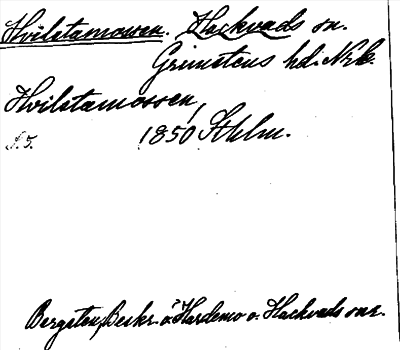 Hvilstamossen. Hackvads sn.
Grimstens hd. Nrk.
Hvilstamossen,
S. 5. 1850 Sthlm.
Bergsten, Beskr. ö. Hardemo o. Hackvads snr.